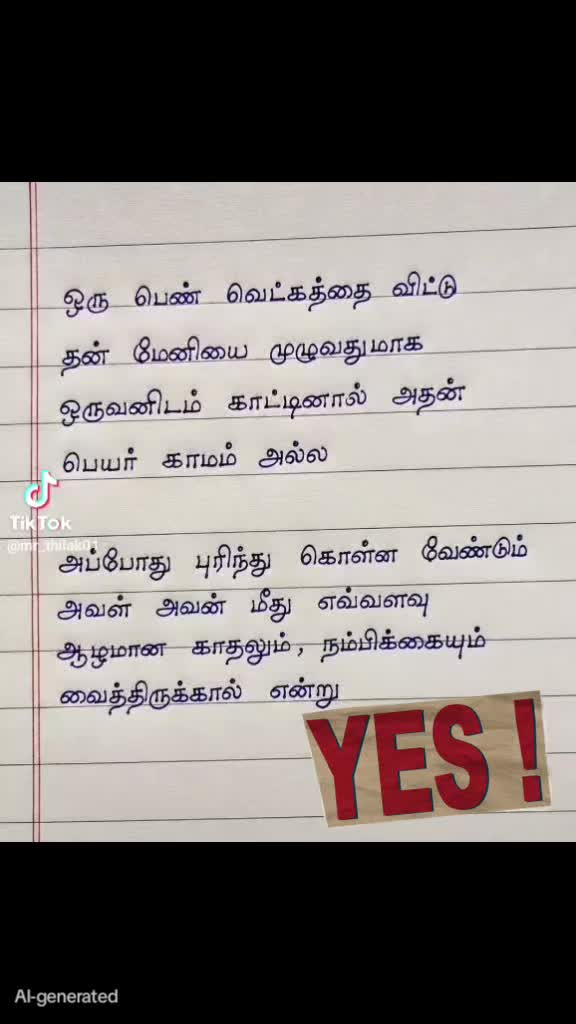 ஒரு பெண் வெட்கத்தை விட்டு
தன் மேனியை முழுவதுமாக
ஒருவனிடம் காட்டினால் அதன்
பெயர் காமம் அல்ல
TikTok
@mr_thilak01
அப்போது புரிந்து கொள்ன வேண்டும்
அவள் அவன் மீது எவ்வளவு
ஆழமான காதலும், நம்பிக்கையும்
வைத்திருக்கால் என்று
YES!
AI-generated